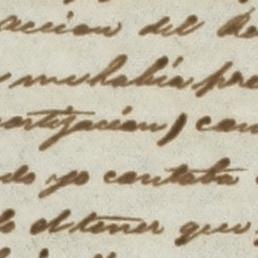 accion del Re
me habia pre
certificacion) can
do yo contaba
el tener que